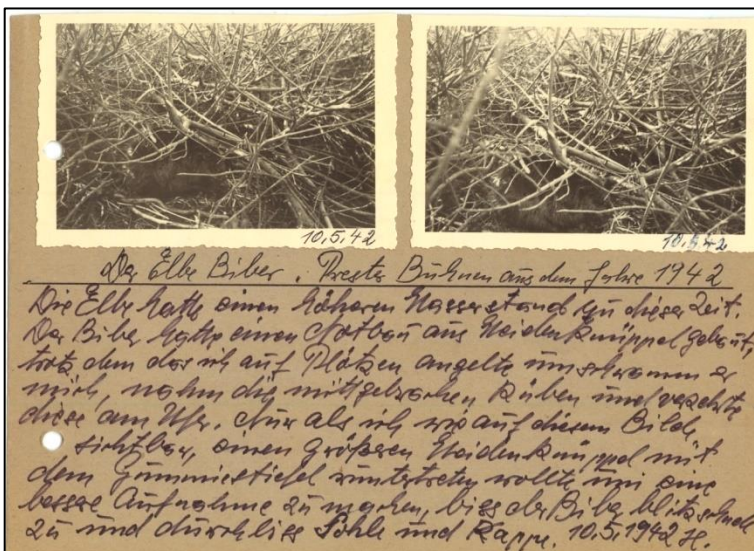 10.5.42
10.5.42
Der Elbe Biber. Prester Buhnen aus dem Jahre 1942
Die Elbe hatte einen höheren Wasserstand zu dieser Zeit.
Der Biber hatte einen Notbau aus Weidenknüppel gebaut
trotz dem das ich auf Plötzen angelte umschwamm er
mich, nahm die mitgebrachen Rüben und verzehrte
diese am Ufer. Nur als ich wie auf diesem Bilde
sichtbar, einen größeren Weidenknüppel mit
dem Gummistiefel runtertreten wollte um eine
bessere Aufnahme zu machen, biss der Biber blitzschnell
zu und durchbiss Sohle und Kappe. 10.5.1942